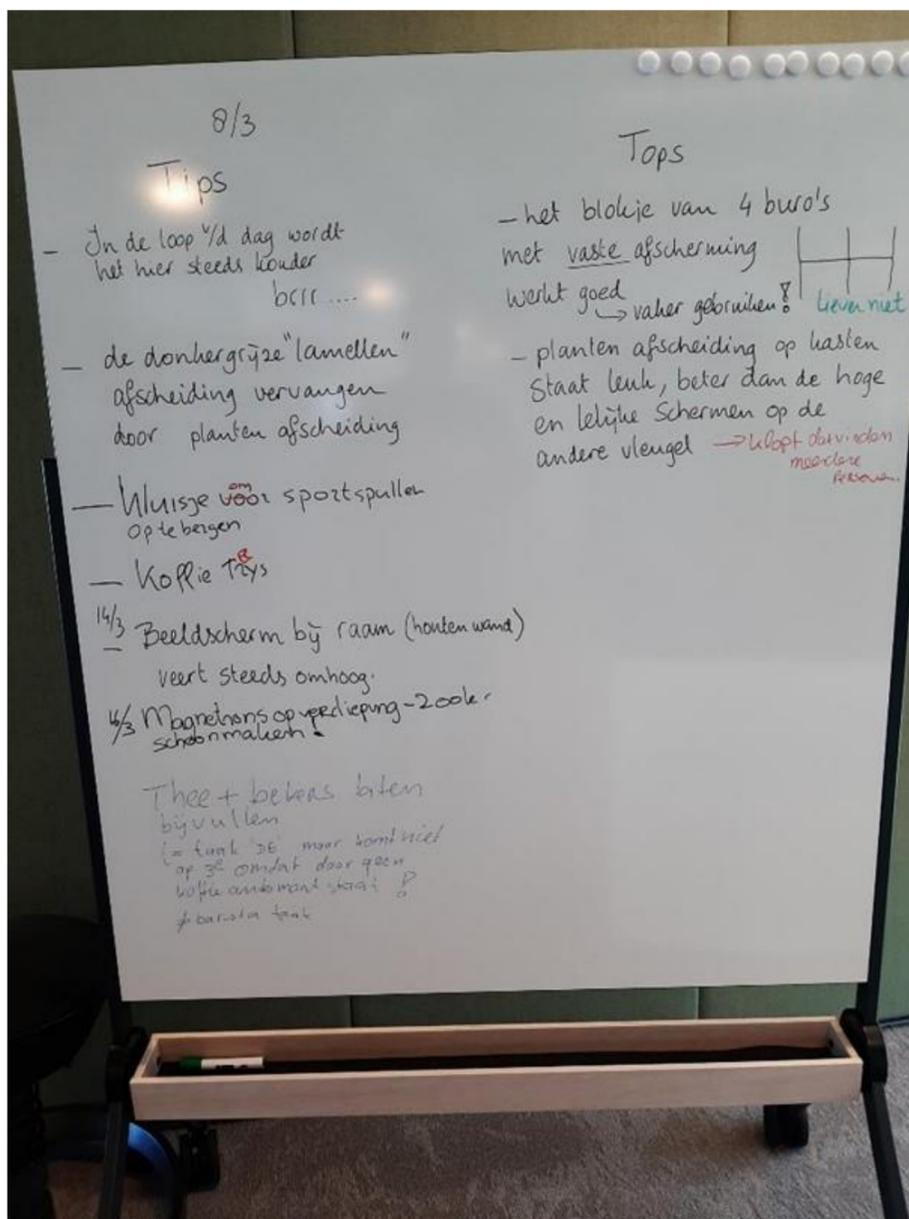 8/3
Tips
- In de loop v/d dag wordt
het hier steeds kouder
brrr....
- de donkergrijze "lamellen"
afscheiding vervangen
door planten afscheiding
- Kluisje voor om sportspullen
op te bergen
- Koffie Trays
14/3
- Beeldscherm bij raam (houten wand)
veert steeds omhoog.
16/3 Magnetrons op verdieping -2 ook
schoonmaken.
Thee + bekers
bijvullen
(= taak DE maar komt niet
op 3e omdat daar geen
koffie automaat staat !
≠ barista taak
Tops
- het blokje van 4 buro's
met vaste afscherming
werkt goed
→ vaker gebruiken! liever niet
- planten afscheiding op kasten
staat leuk, beter dan de hoge
en lelijke schermen op de
andere vleugel → klopt dat vinden
meerdere
personen.